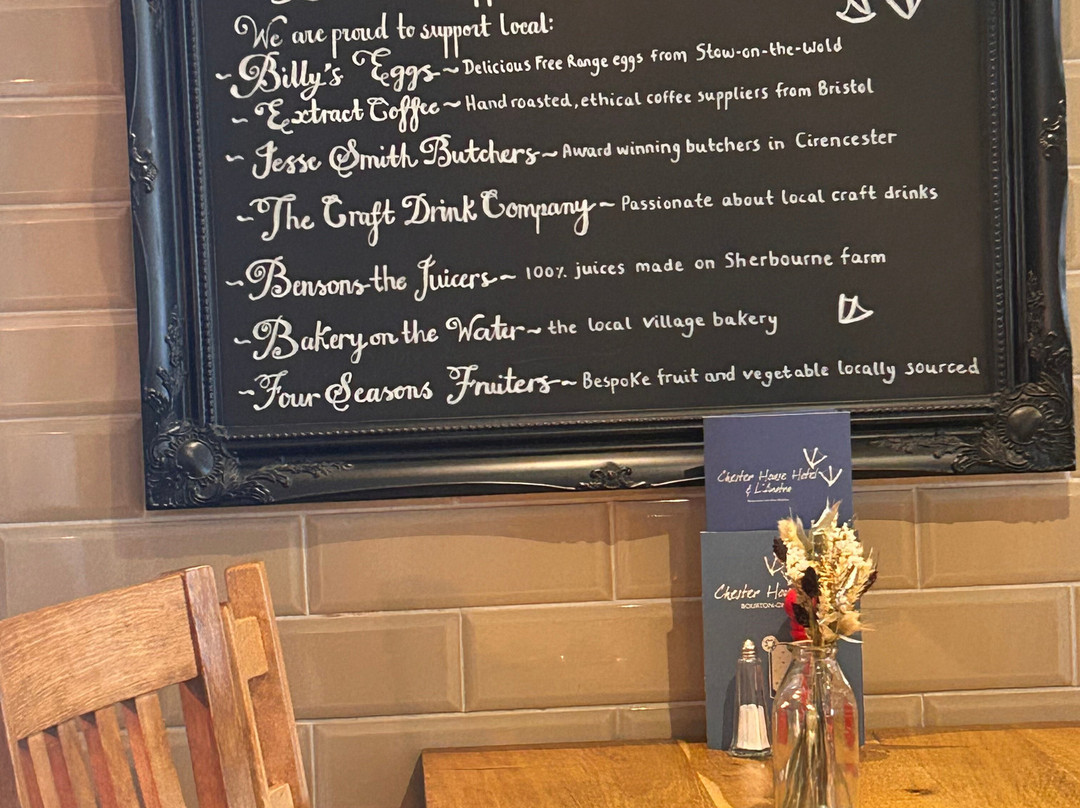 We are proud to support local:
~Billy's Eggs~Delicious Free Range eggs from Stow-on-the-Wold
~Extract Coffee~Hand roasted, ethical coffee suppliers from Bristol
~Jesse Smith Butchers~Award winning butchers in Cirencester
~The Craft Drink Company~Passionate about local craft drinks
~Bensons the Juicers~100% juices made on Sherbourne farm
~Bakery on the Water~the local village bakery
~Four Seasons Fruiters~Bespoke fruit and vegetable locally sourced
Chester House Hotel
& L'Anatra
Chester